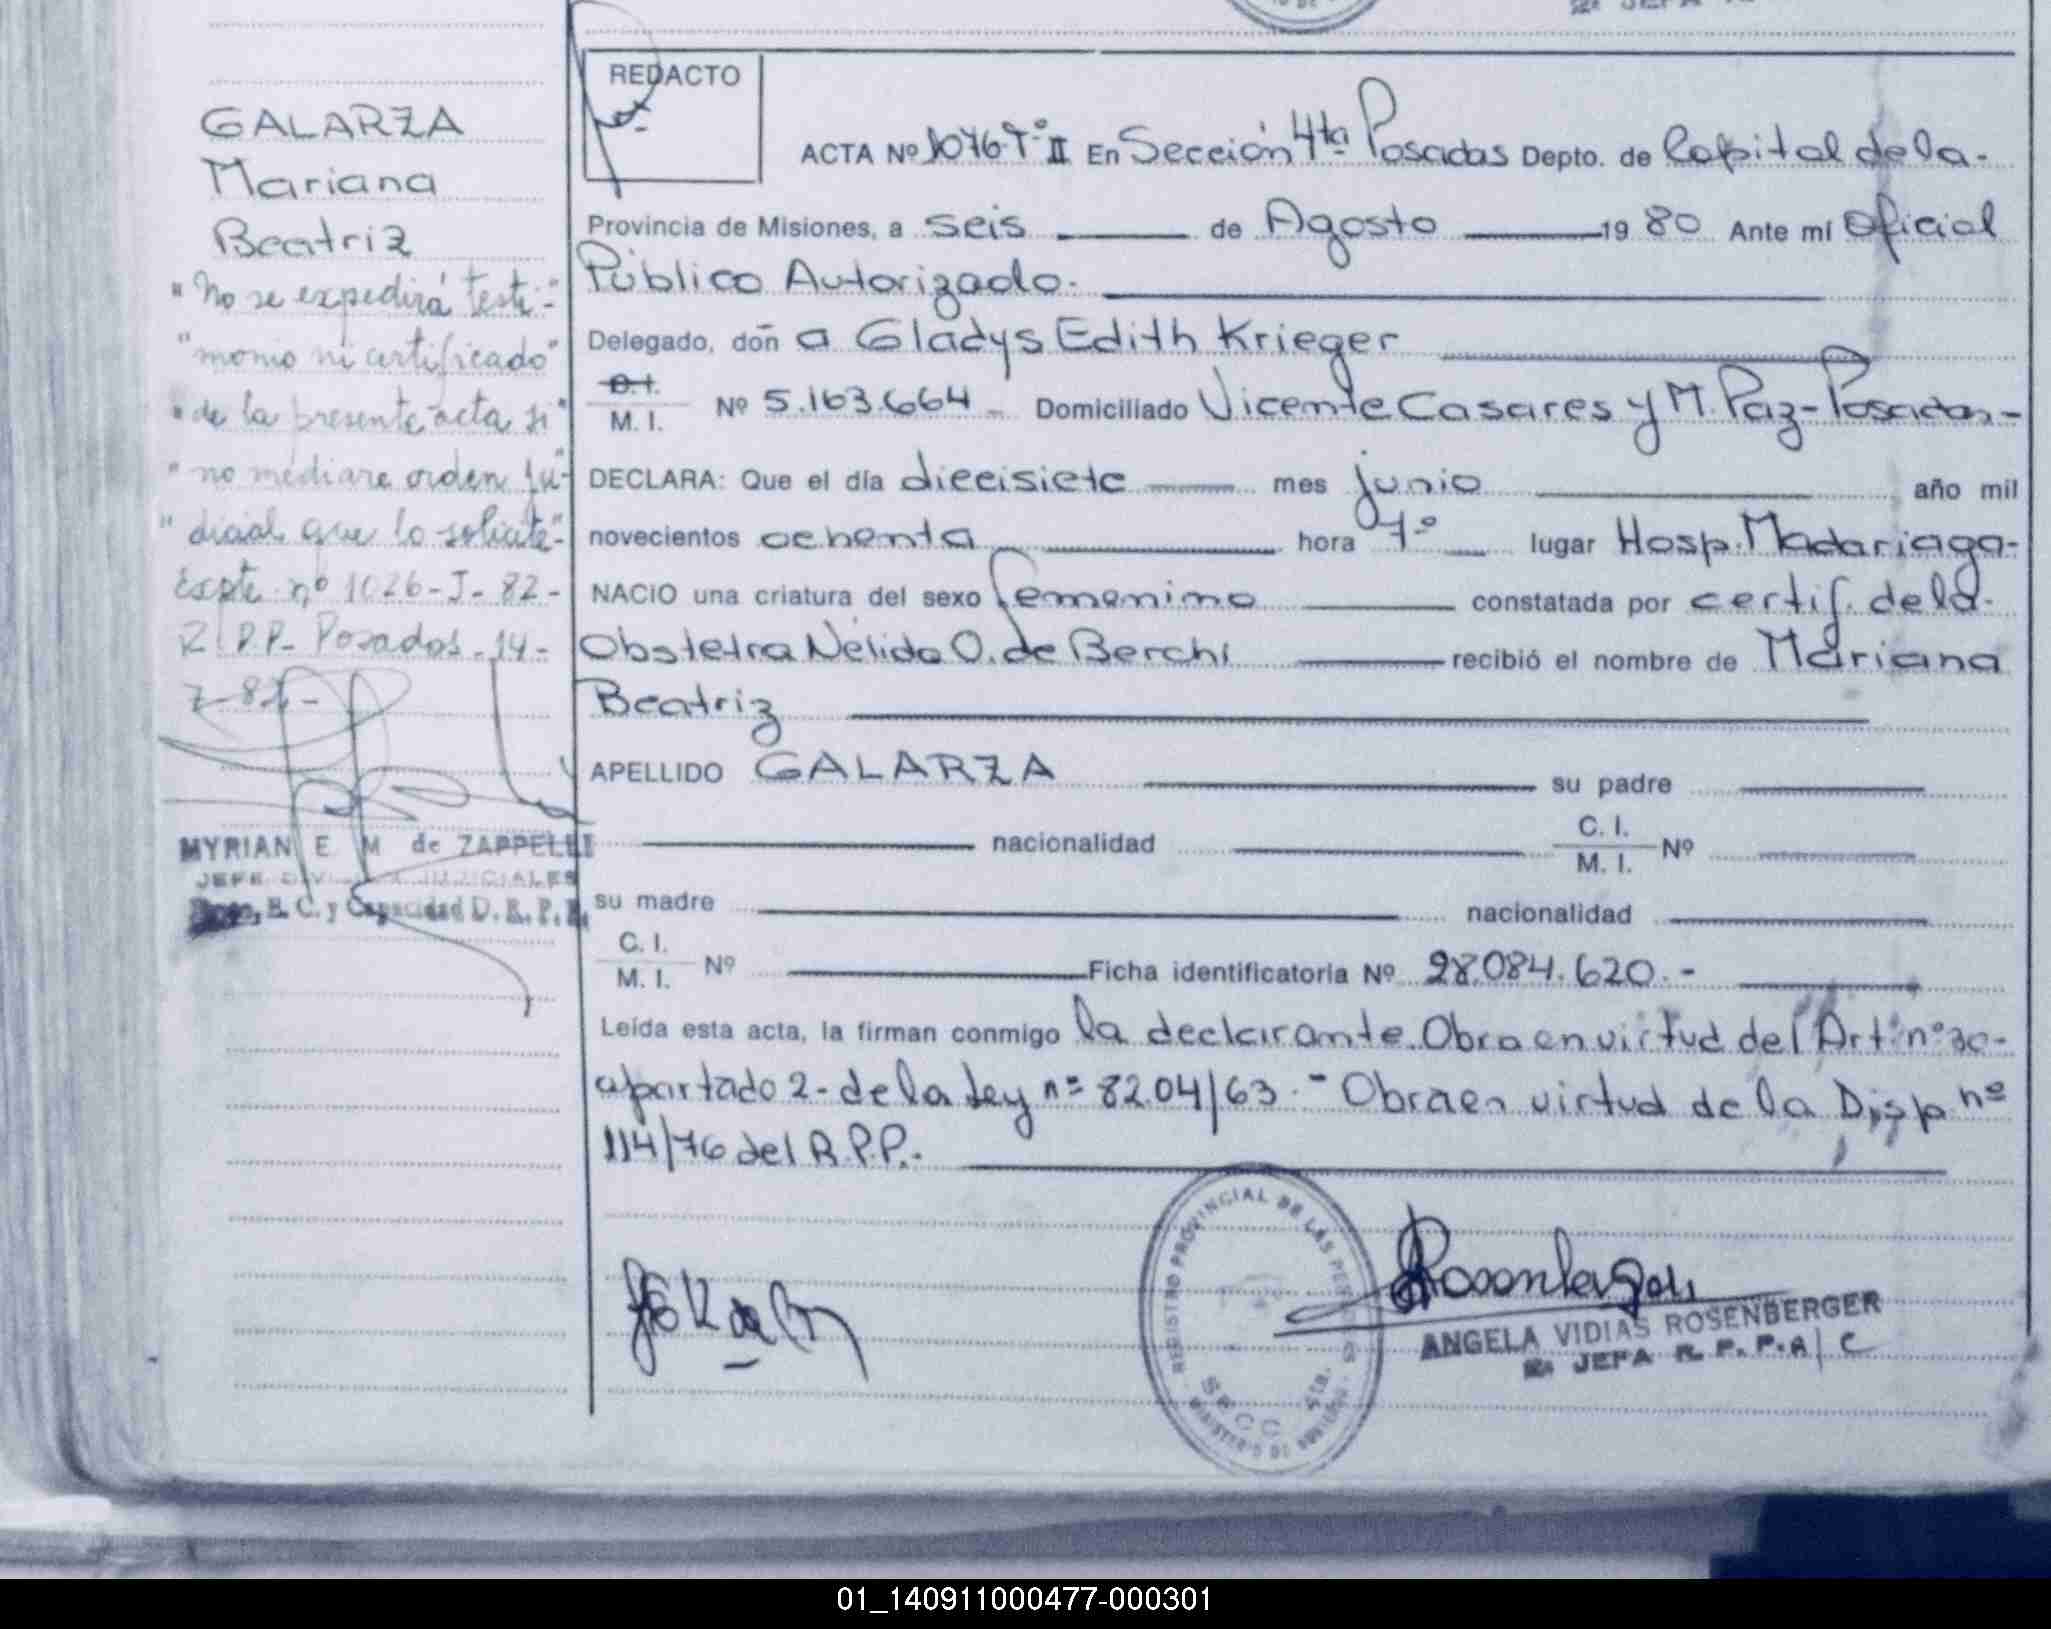 2º JEFA
REDACTO
GALARZA
Mariana
Beatriz
"No se expedirá testi-"
"monio ni certificado"
"de la presente acta si"
"no mediare orden ju-"
"dicial que lo solicite"-
Expte. nº 1026-J-82-
R.P.P- Posadas-14-
7-82-
MYRIAN E. M de ZAPPELLI
JEFE JUDICIALES
E. C. y Capacidad D. R. P. P.
ACTA Nº 1076 Tº II En Sección 4ta Posadas Depto. de Capital de la-
Provincia de Misiones, a seis de Agosto 1980 Ante mí Oficial
Público Autorizado.-
Delegado, doña Gladys Edith Krieger
C.I. M. I. Nº 5.163.664- Domiciliado Vicente Casares y M. Paz-Posadas-
DECLARA: Que el día diecisiete mes junio año mil
novecientos ochenta hora 7º lugar Hosp. Madariaga-
NACIO una criatura del sexo femenino constatada por certif. de la-
Obstetra Nélida O. de Berchi recibió el nombre de Mariana
Beatriz
APELLIDO GALARZA su padre
nacionalidad C. I. M. I. Nº
su madre nacionalidad
C. I. M. I. Nº Ficha identificatoria Nº 28.084.620.-
Leída esta acta, la firman conmigo la declarante. Obra en virtud del Art. nº 30-
apartado 2- de la Ley nº 8204/63.- Obra en virtud de la Disp nº
114/76 del R.P.P.-
REGISTRO PROVINCIAL DE LAS PERSONAS
SECC. 4ta.
MINISTERIO DE GOBIERNO
Rosenberger
ANGELA VIDIAS ROSENBERGER
2º JEFA R. P. P. A/C
01_140911000477-000301